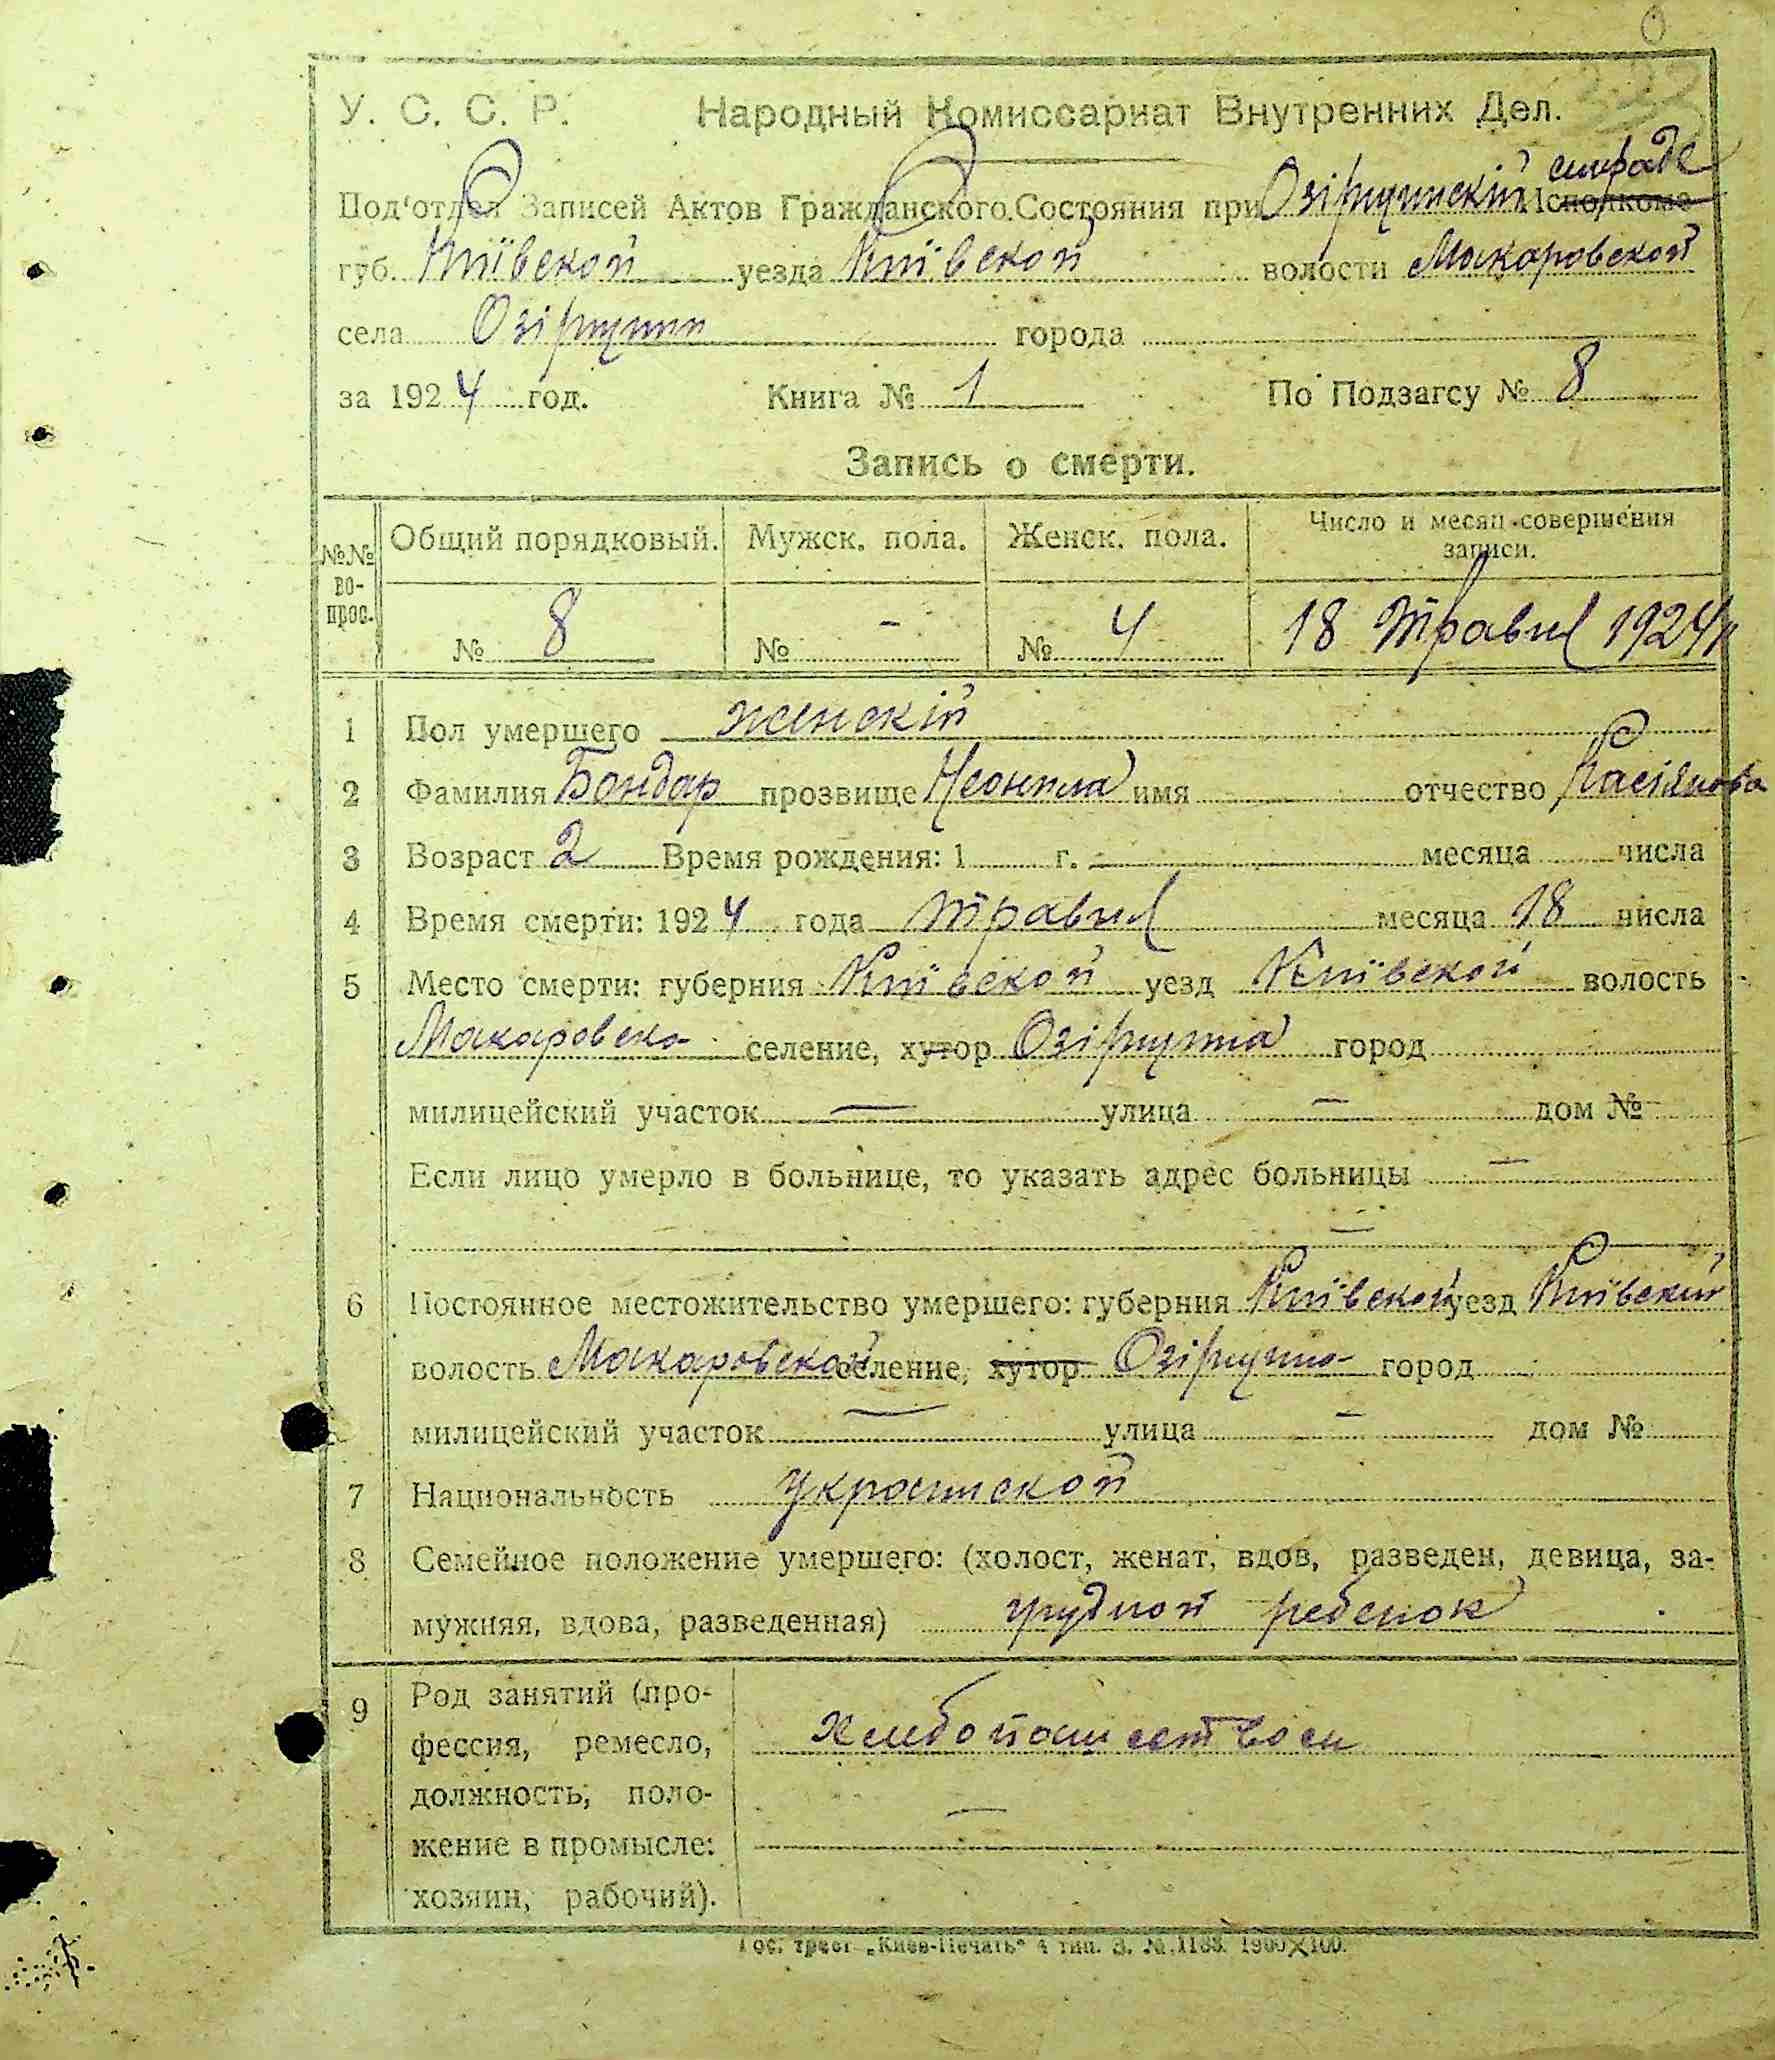 У. С. С. Р. Народный Комиссариат Внутренних Дел.
Под'отдел Записей Актов Гражданского Состояния при Озірщинскій сільраде Исполкоме
губ. Київской уезда Київской волости Макаровской
села Озірщини города
за 1924 год. Книга № 1 По Подзагсу № 8
Запись о смерти.
№№ вопрос. Общий порядковый. Мужск. пола. Женск. пола. Число и месяц совершения записи.
№ 8 № - № 4 18 Травня 1924 р
1 Пол умершего женскій
2 Фамилия Бондар прозвище имя отчество Касіянова
3 Возраст 2 Время рождения: 1 г. месяца числа
4 Время смерти: 1924 года Травня месяца 18 числа
5 Место смерти: губерния Київской уезд Київской волость
Макаровско селение, хутор Озірщина город
милицейский участок — улица — дом №
Если лицо умерло в больнице, то указать адрес больницы —
—
6 Постоянное местожительство умершего: губерния Київской уезд Київский
волость Макаровской селение, хутор Озірщина город
милицейский участок — улица — дом №
7 Национальность Украинской
8 Семейное положение умершего: (холост, женат, вдов, разведен, девица, за-
мужняя, вдова, разведенная) грудной ребенок
9 Род занятий (про-
фессия, ремесло, хлебопашеством
должность, поло-
жение в промысле: —
хозяин, рабочий).
Гос. трест „Киев-Печать“ 4 тип. З. № 1183. 1900×100.